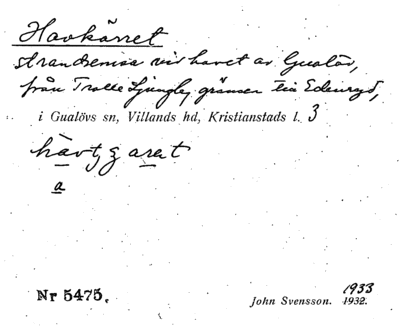 Havkärret
strandremsa vid havet av Gualöv,
från Trolle Ljungby gränsen till Edenryd,
i Gualövs sn, Villands hd, Kristianstads l. 3
a
Nr 5475.
John Svensson. 1932. 1933